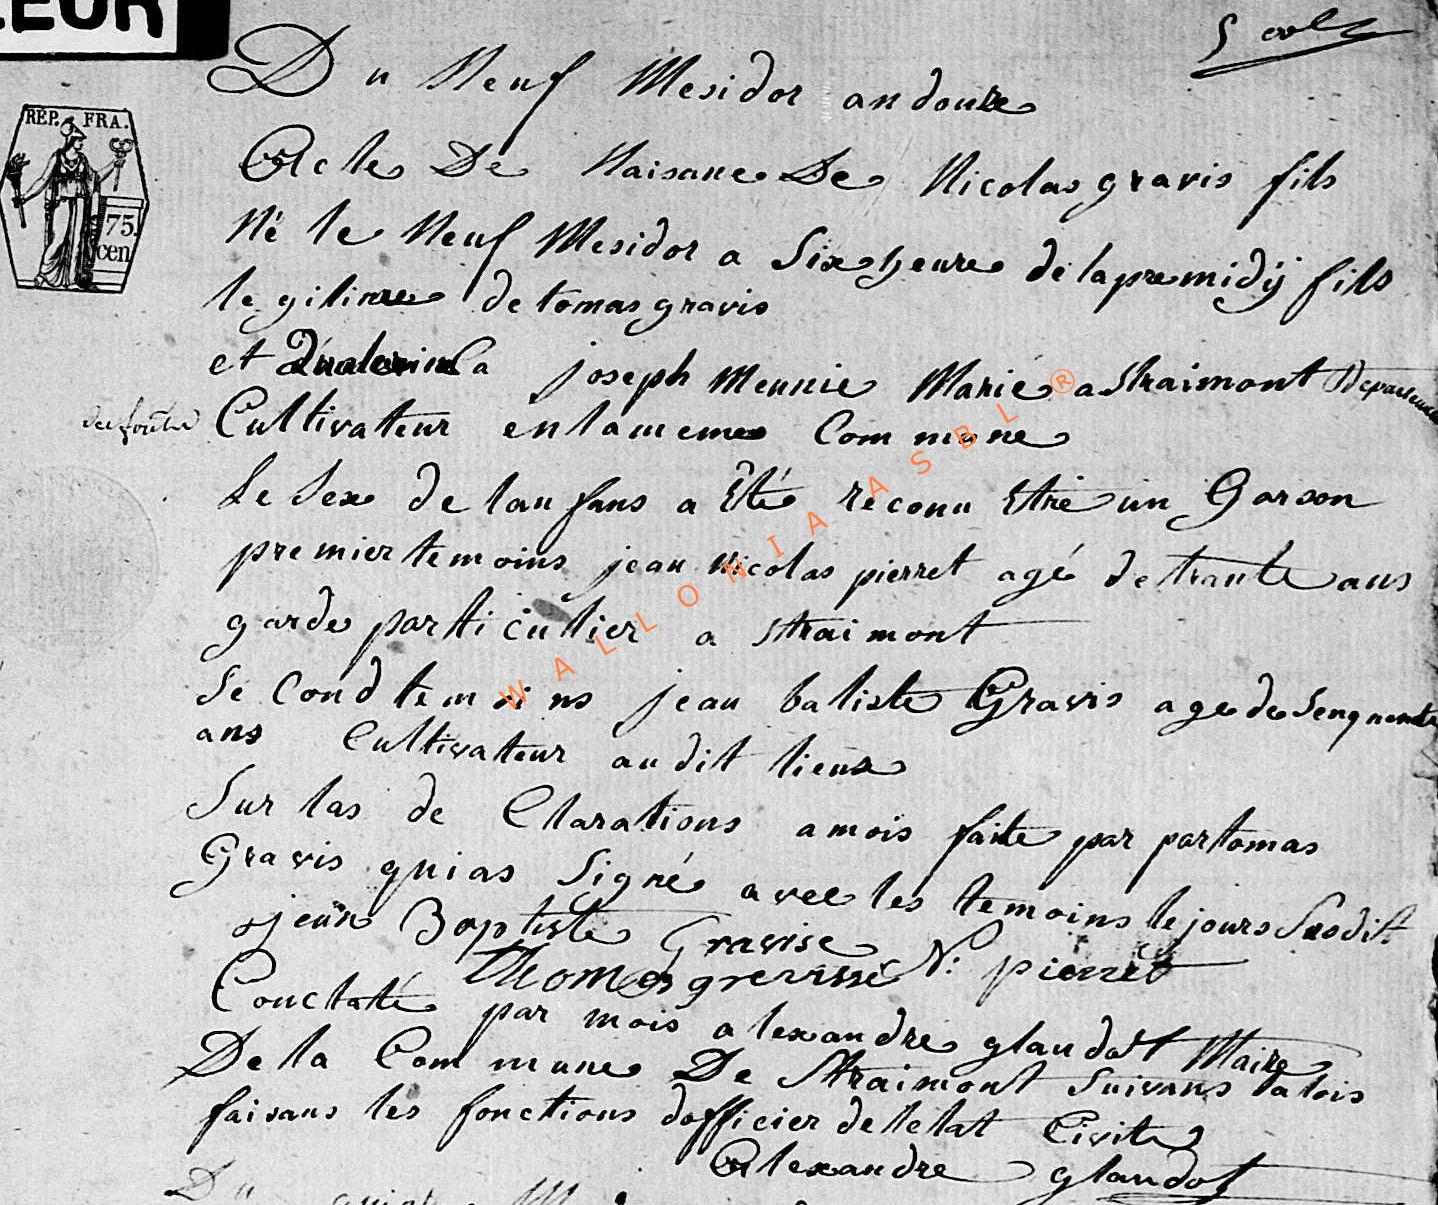 EUR
RÉP. FRA.
75.
cen
Du Neuf Mesidor an douze
Acte De Naisance De Nicolas gravis fils
Né le Neuf Mesidor a Six heure de lapremidÿ fils
legitime de tomas gravis
et joseph Meunie Marié a Straimont
Cultivateur en la meme Commune
Le Sex de lanfans a Eté reconu Etre un Garson
premier temoins jean Nicolas pierret agé de trante ans
garde particulier a straimont
Second temoins jean batiste Gravis age de Senquante
ans Cultivateur audit lieux
Sur las de Clarations a mois faite par par tomas
Gravis qui as Signé avec les temoins le jours Susdit
jean Baptiste Gravise
thomas grevisse N: pierret
Conctaté par mois alexandre glaudot Maire
De la Commune De Straimont Suivans la lois
faisans les fonctions dofficier de letat Civile
Alexandre glaudot
Du
WALLONIA ASBL ®